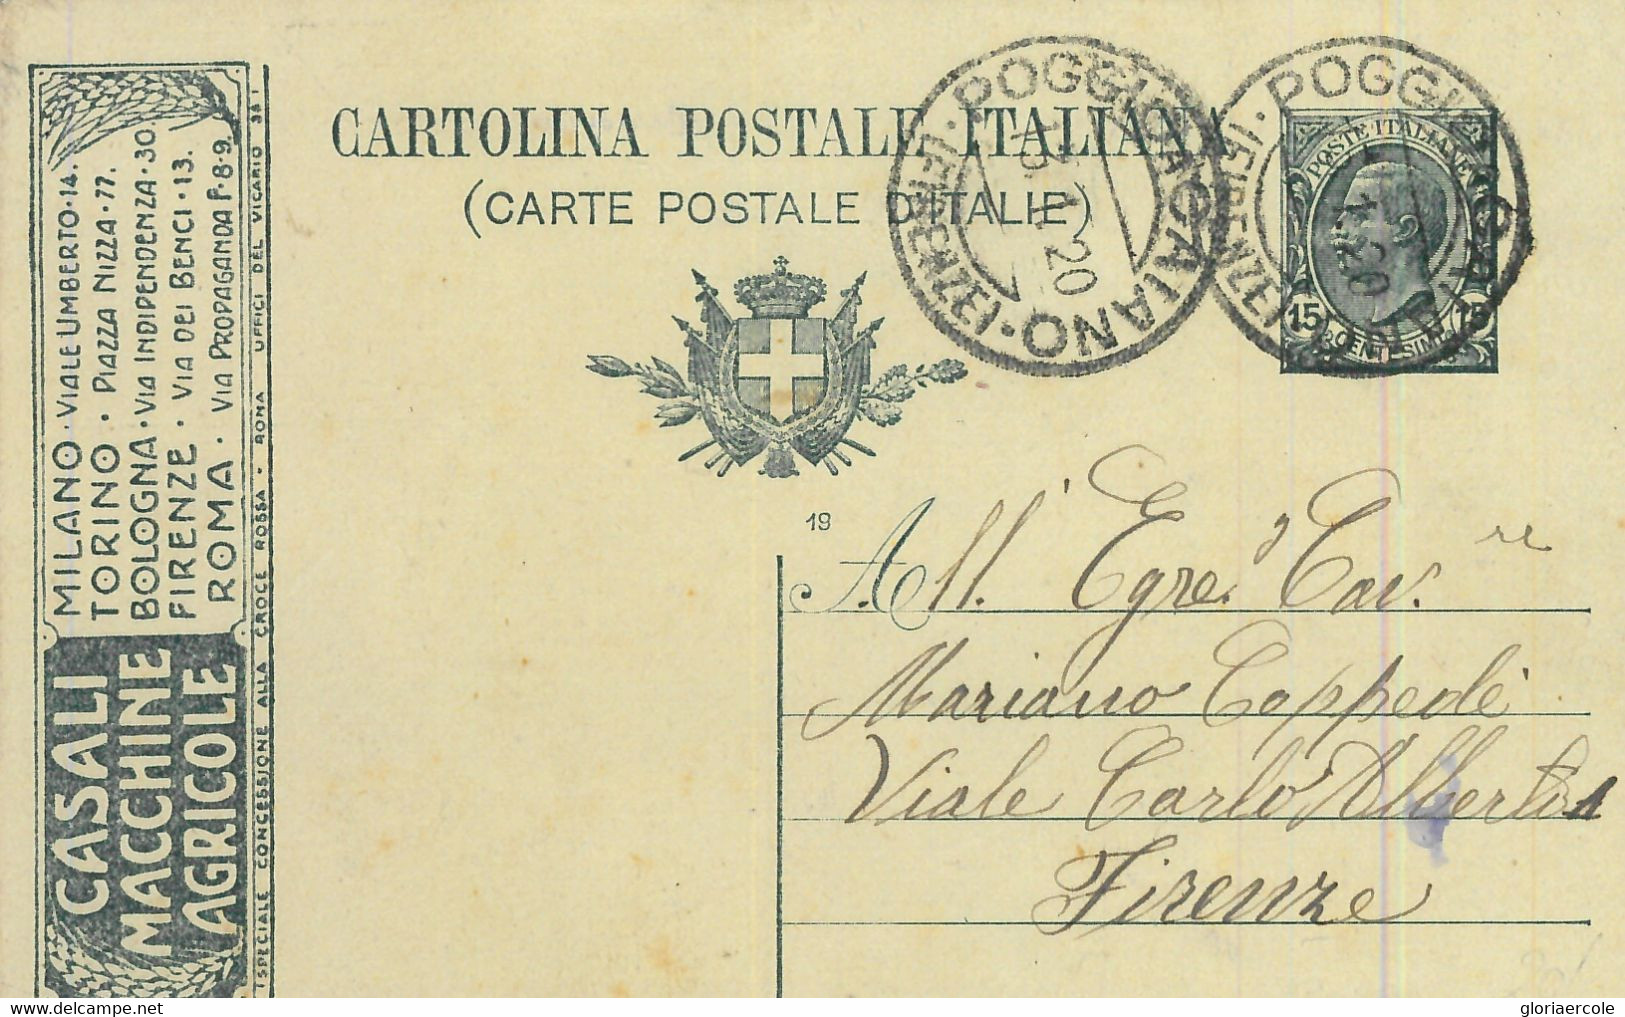 CARTOLINA POSTALE ITALIANA
(CARTE POSTALE D'ITALIE)
POGGIO A CAIANO
(FIRENZE)
1.20
POGGIO A CAIANO
(FIRENZE)
1.20
POSTE ITALIANE
15 CENTESIMI 15
19
All' Egre. Cav.re
Mariano Coppedè
Viale Carlo Alberto 1
Firenze
MILANO · VIALE UMBERTO · 14.
TORINO · PIAZZA NIZZA · 77.
BOLOGNA · VIA INDIPENDENZA · 30.
FIRENZE · VIA DEI BENCI · 13.
ROMA · VIA PROPAGANDA F. 8-9.
CASALI
MACCHINE
AGRICOLE
SPECIALE CONCESSIONE ALLA CROCE ROSSA · ROMA UFFICI DEL VICARIO 35
delcampe.net
gloriaercole